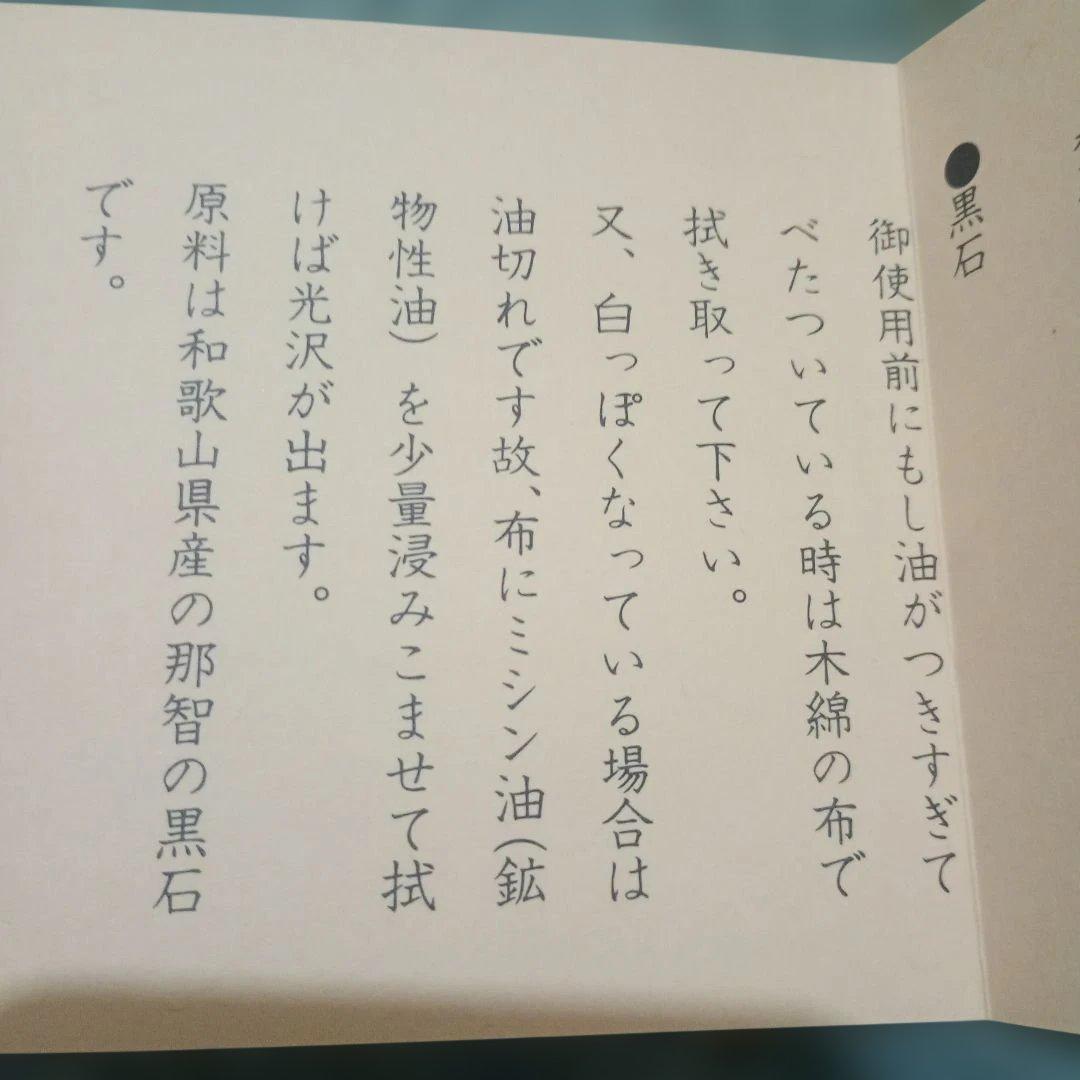 ●黒石
御使用前にもし油がつきすぎて
べたついている時は木綿の布で
拭き取って下さい。
又、白っぽくなっている場合は
油切れです故、布にミシン油(鉱
物性油)を少量浸みこませて拭
けば光沢が出ます。
原料は和歌山県産の那智の黒石
です。